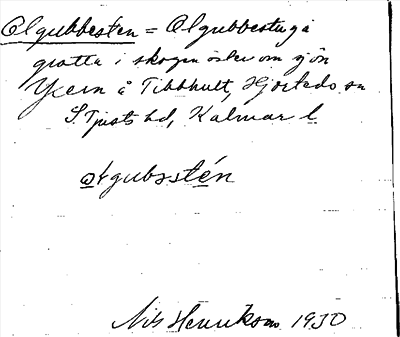 Olgubbesten = Olgubbestuga
grotta i skogen öster om sjön
Yxern å Tibbhult, Hjorteds sn
S. Tjusts hd, Kalmar l.
Nils Henrikson 1930